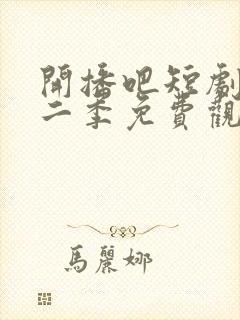 開播吧短劇
二季免費觀
馬麗娜